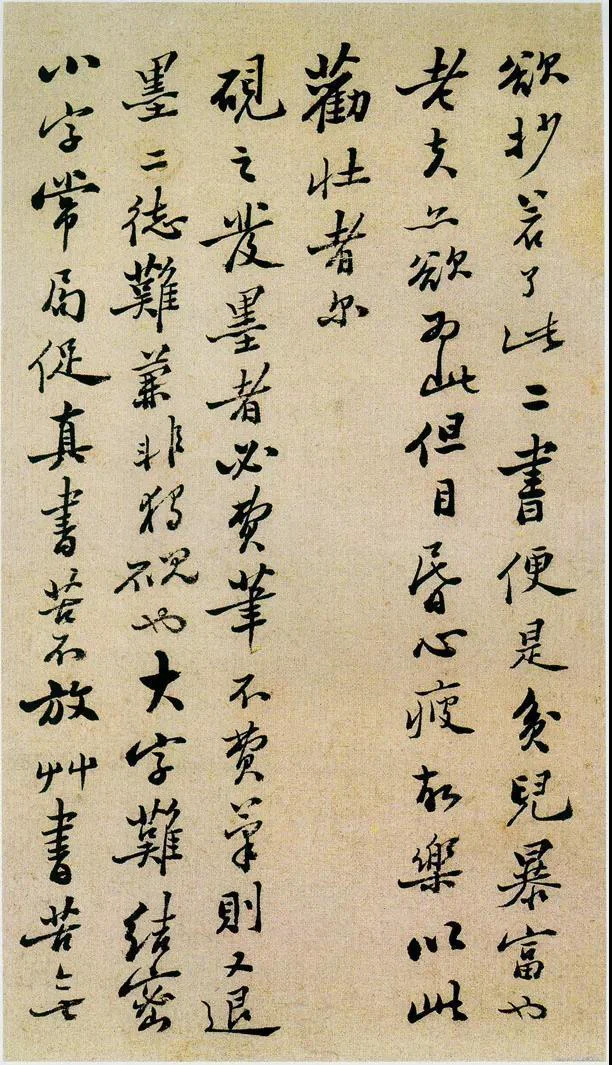 欲抄若了此二書便是貧兒暴富也
老夫亦欲為此但目昏心疲故樂以此
勸壯者尓
硯之發墨者必費筆不費筆則又退
墨二德難兼非獨硯也大字難結密
小字常局促真書苦不放艸書苦无